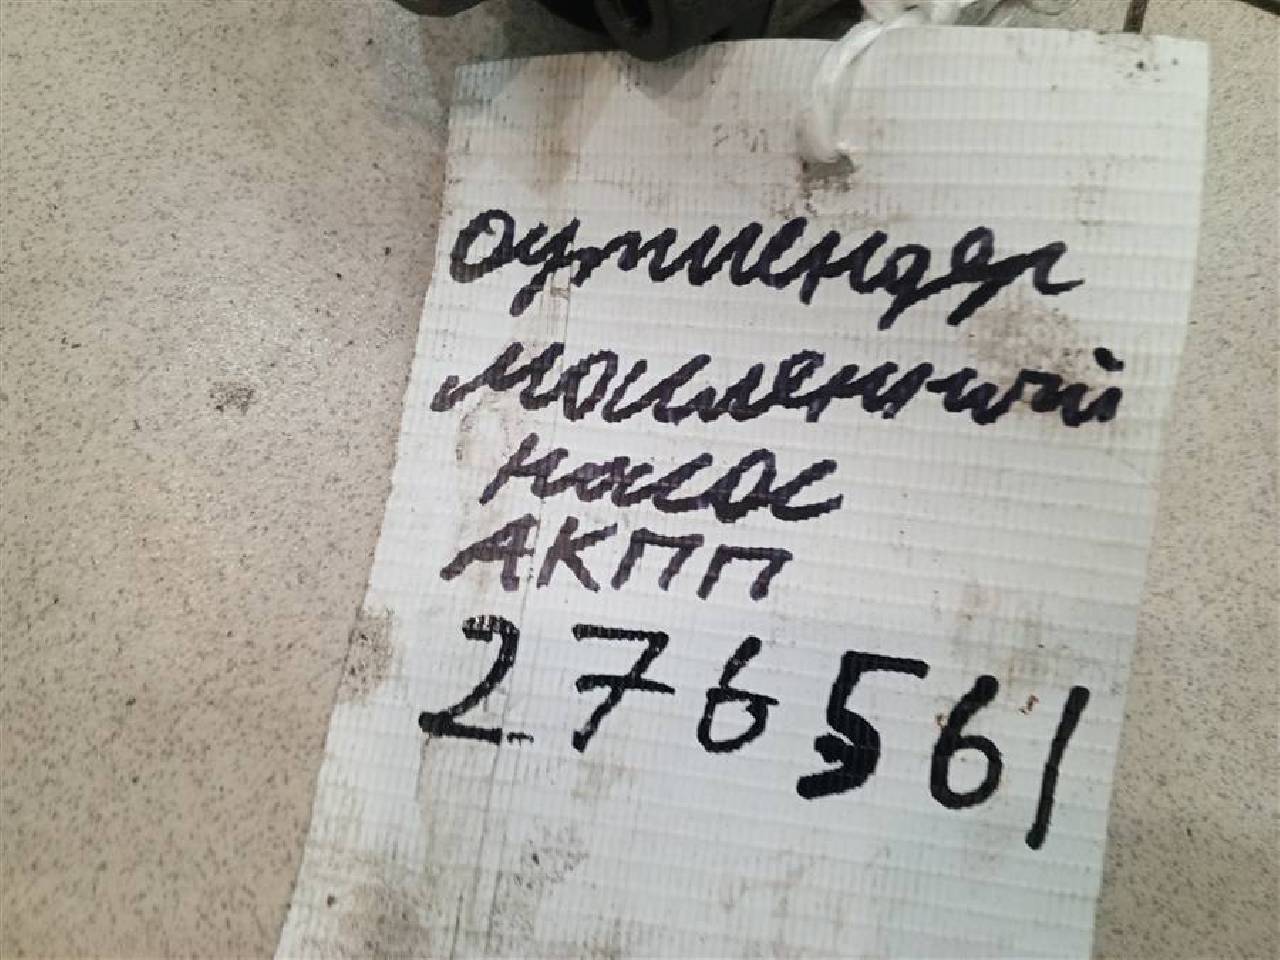 оутлендер
масленный
насос
АКПП
276561